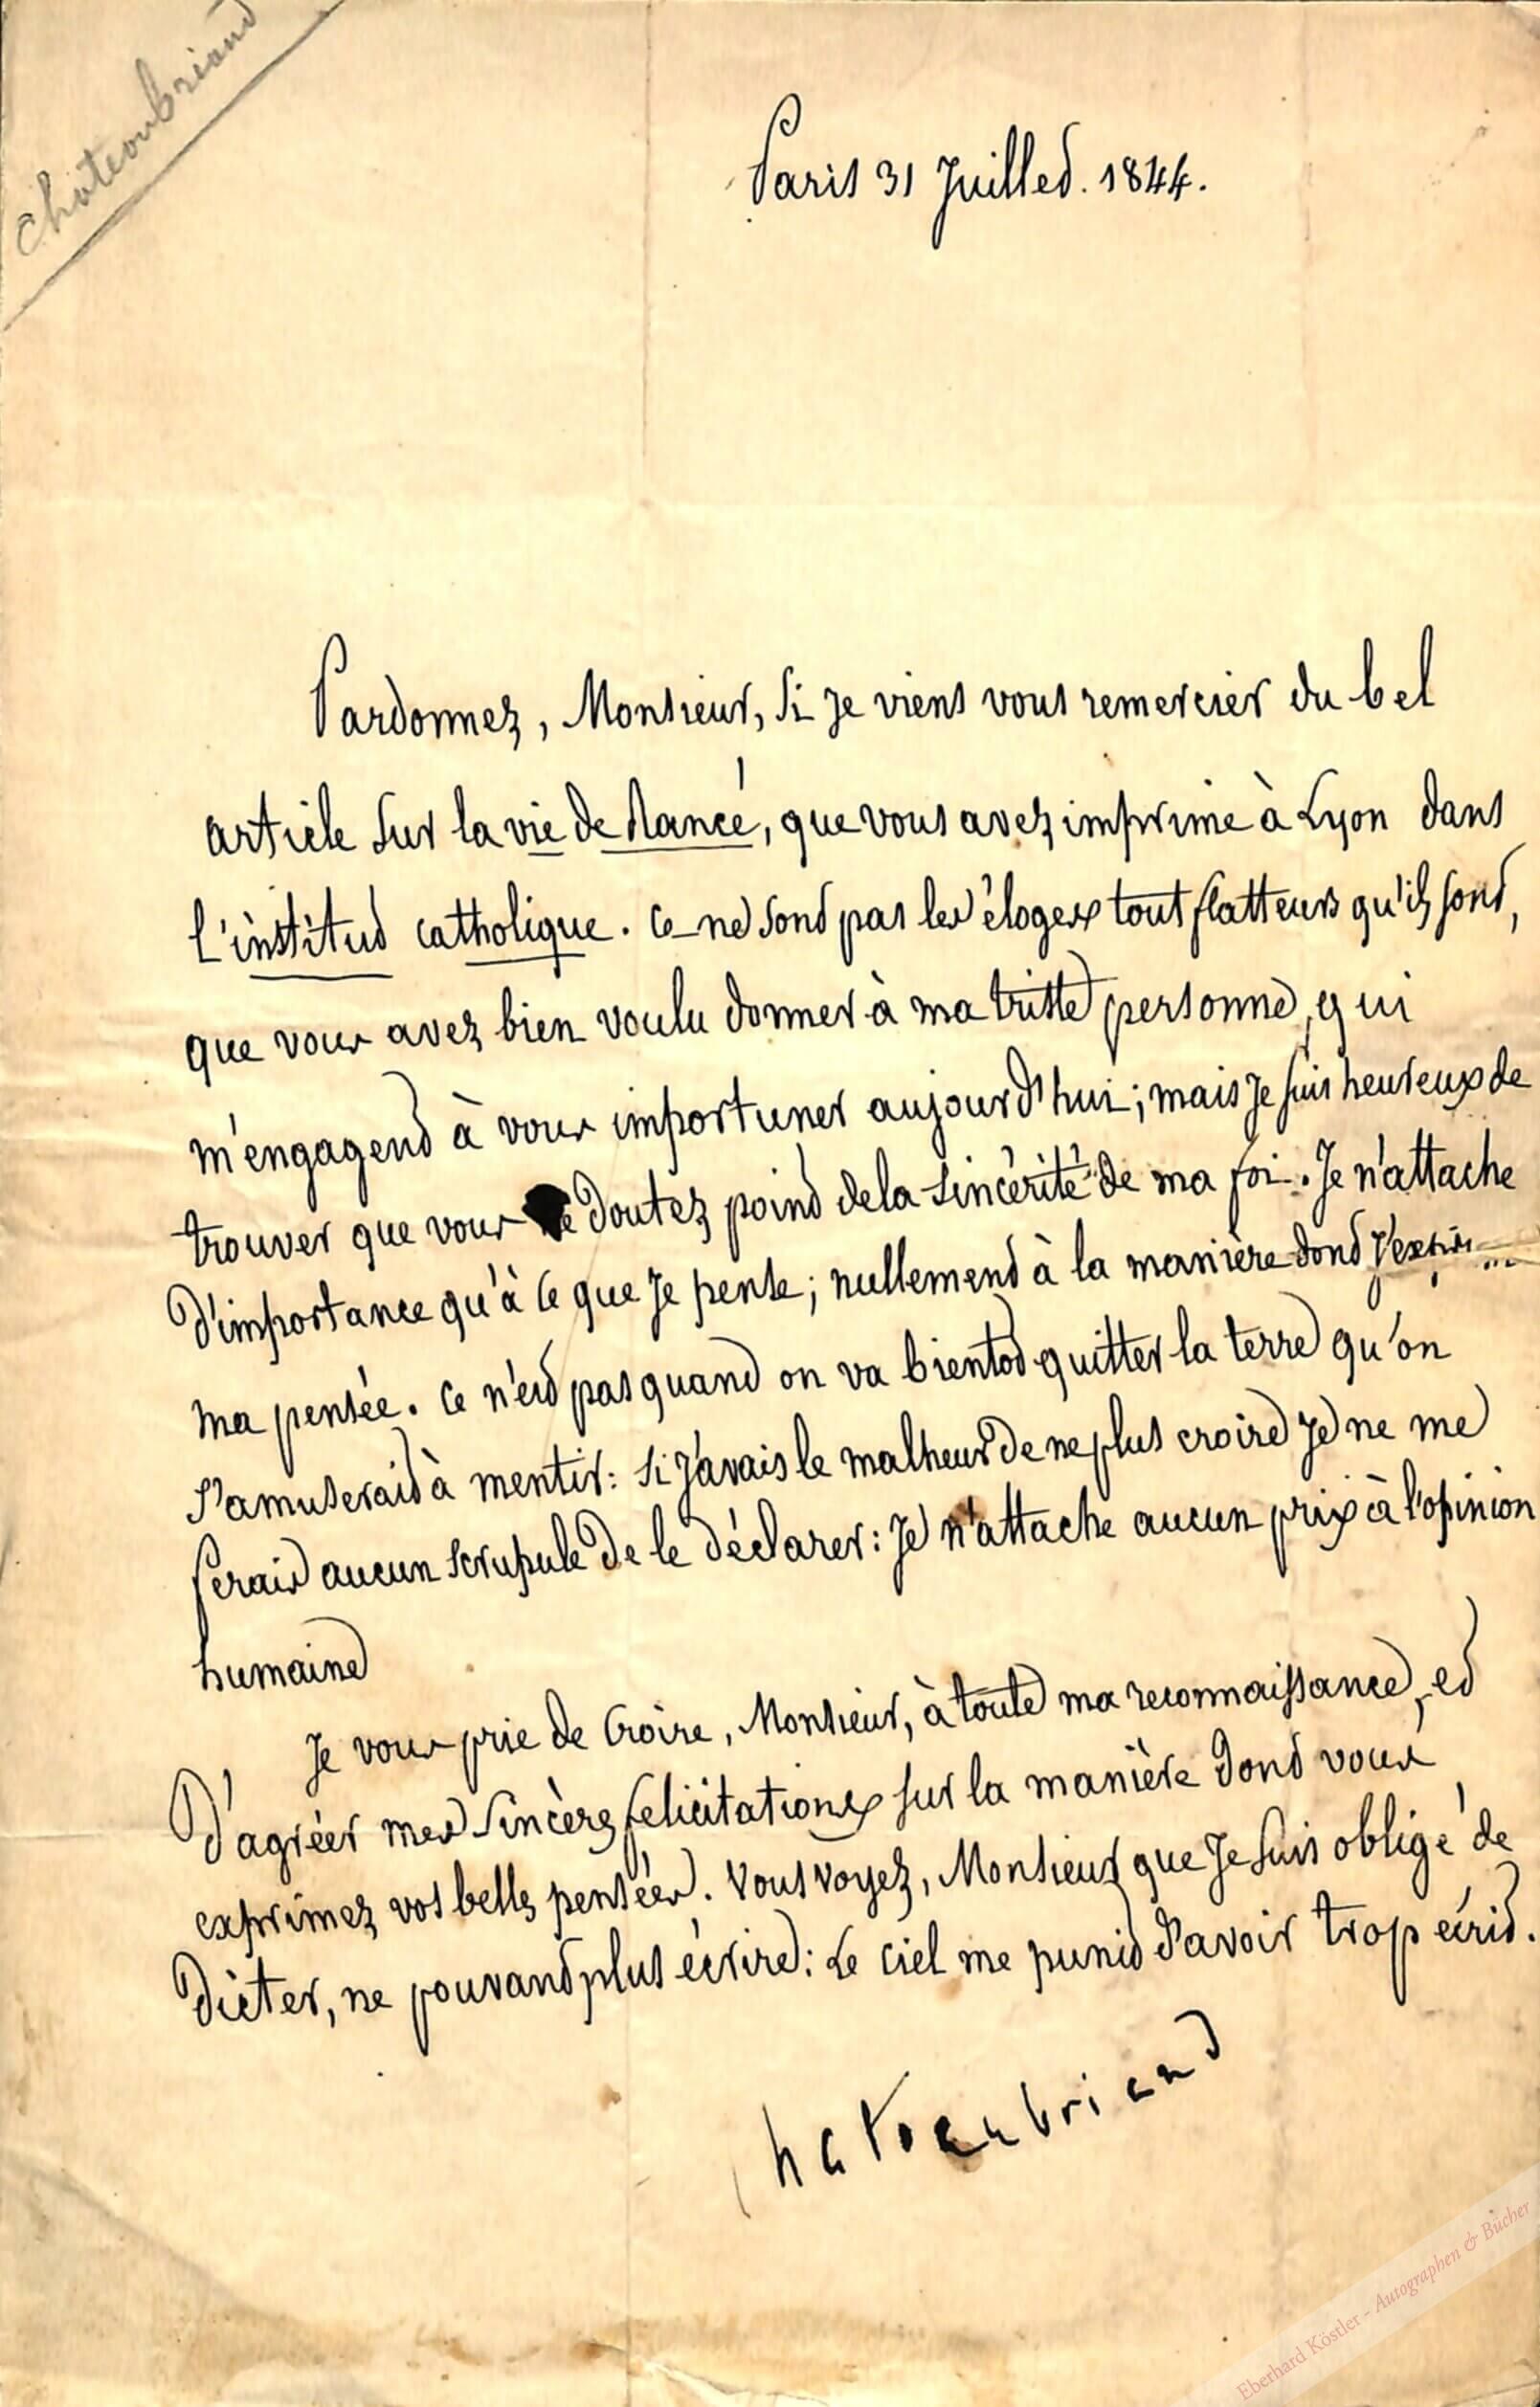 Chateaubriand
Paris 31 Juillet. 1844.
Pardonnez, Monsieur, si je viens vous remercier du bel
article sur la vie de Rancé, que vous avez imprimé à Lyon dans
l'institut catholique. Ce ne sont pas les éloges tout flatteurs qu'ils sont,
que vous avez bien voulu donner à ma triste personne, qui
m'engagent à vous importuner aujourd'hui; mais je suis heureux de
trouver que vous ne doutez point de la sincérité de ma foi. Je n'attache
d'importance qu'à ce que je pense; nullement à la manière dont
ma pensée. Ce n'est pas quand on va bientot quitter la terre qu'on
s'amuserait à mentir: si j'avais le malheur de ne plus croire je ne me
ferais aucun scrupule de le déclarer: Je n'attache aucun prix à l'opinion
humaine
Je vous prie de croire, Monsieur, à toute ma reconnaissance, et
d'agréer mes sincères felicitations sur la manière dont vous
exprimez vos belles pensées. Vous voyez, Monsieur que je suis obligé de
dicter, ne pouvant plus écrire: Le ciel me punit d'avoir trop écrit.
Chateaubriand
Eberhard Köstler - Autographen & Bücher